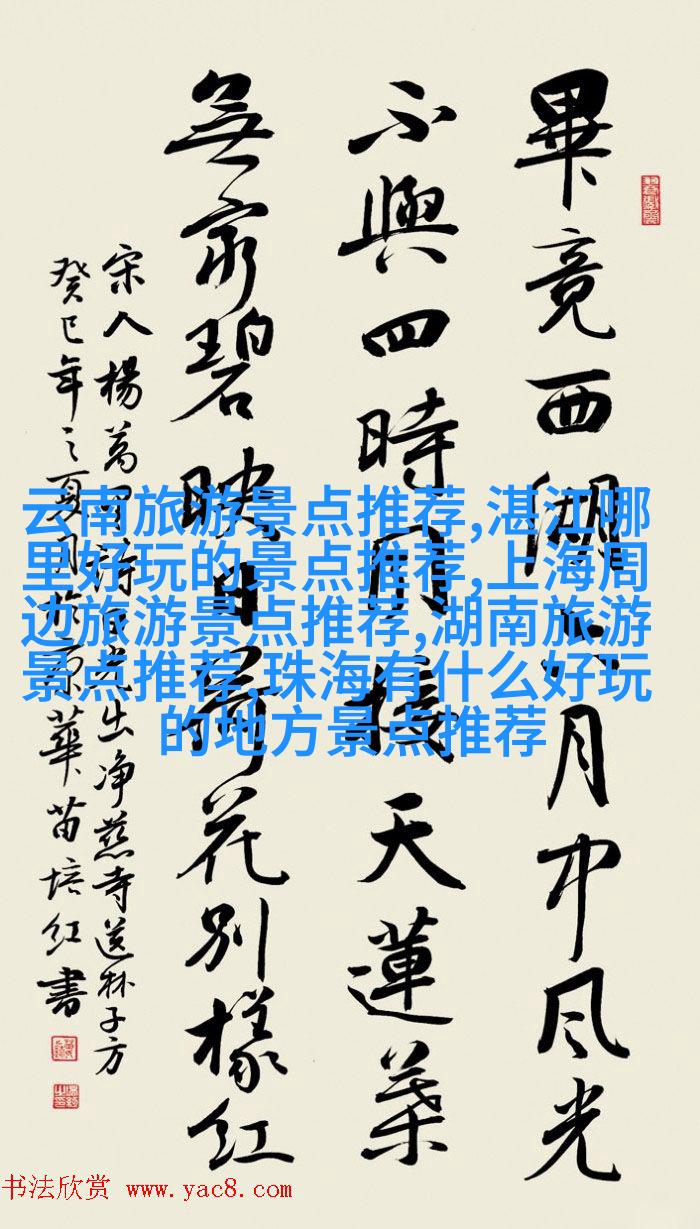 畢竟西湖六月中风光
不與四時同接天蓮葉
無窮碧映日荷花別樣紅
宋人楊萬里詩曉出净慈寺送林子方
癸巳年之夏月於京華苗培红書
云南旅游景点推荐,湛江哪
里好玩的景点推荐,上海周
边旅游景点推荐,湖南旅游
景点推荐,珠海有什么好玩
的地方景点推荐
书法欣赏 www.yac8.com